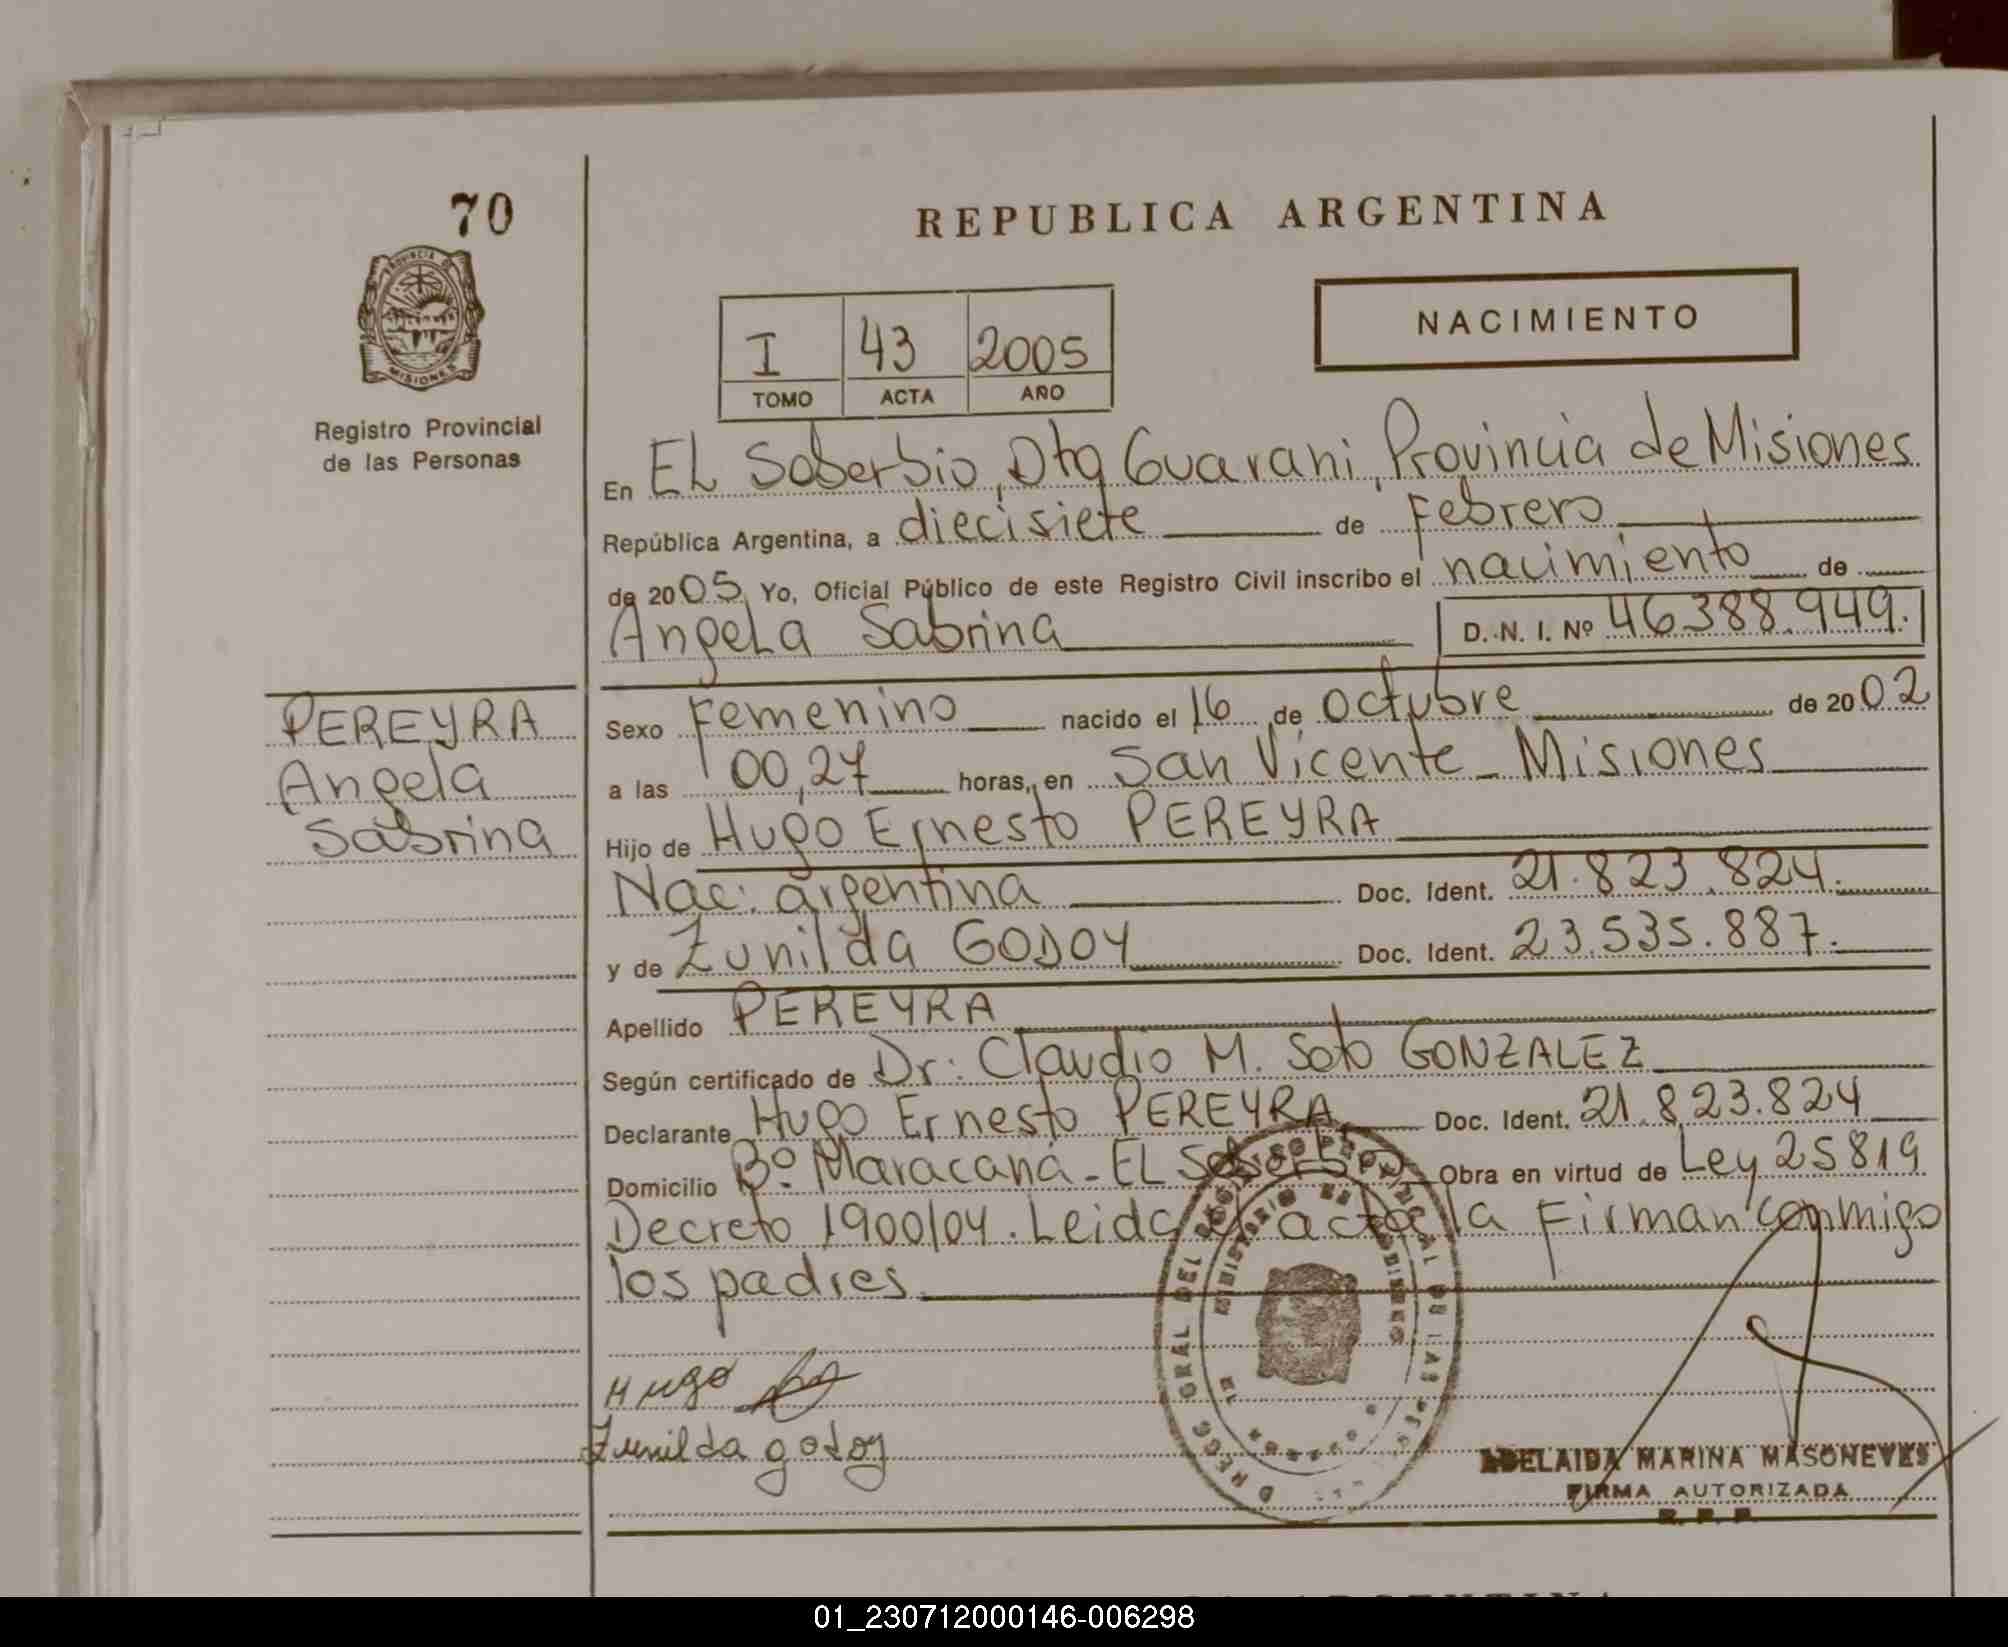 70
PROVINCIA DE
MISIONES
Registro Provincial
de las Personas
REPUBLICA ARGENTINA
I 43 2005
TOMO ACTA AÑO
NACIMIENTO
En EL Soberbio, Dto Guarani, Provincia de Misiones
República Argentina, a diecisiete de Febrero
de 2005 Yo, Oficial Público de este Registro Civil inscribo el nacimiento de
Angela Sabrina D. N. I. Nº 46.388.949.
PEREYRA
Angela
Sabrina
Sexo Femenino nacido el 16 de octubre de 2002
a las 00,27 horas, en San Vicente - Misiones
Hijo de Hugo Ernesto PEREYRA
Nac: argentina Doc. Ident. 21.823.824.
y de Zunilda GODOY Doc. Ident. 23.535.887.
Apellido PEREYRA
Según certificado de Dr: Claudio M. Soto GONZALEZ
Declarante Hugo Ernesto PEREYRA Doc. Ident. 21.823.824
Domicilio Bº Maracaná - EL Soberbio Obra en virtud de Ley 25819
Decreto 1900/04. Leida el acta la Firman conmigo
los padres
Hugo
Zunilda godoy
ADELAIDA MARINA MASONEVES
FIRMA AUTORIZADA
R. P. P.
01_230712000146-006298